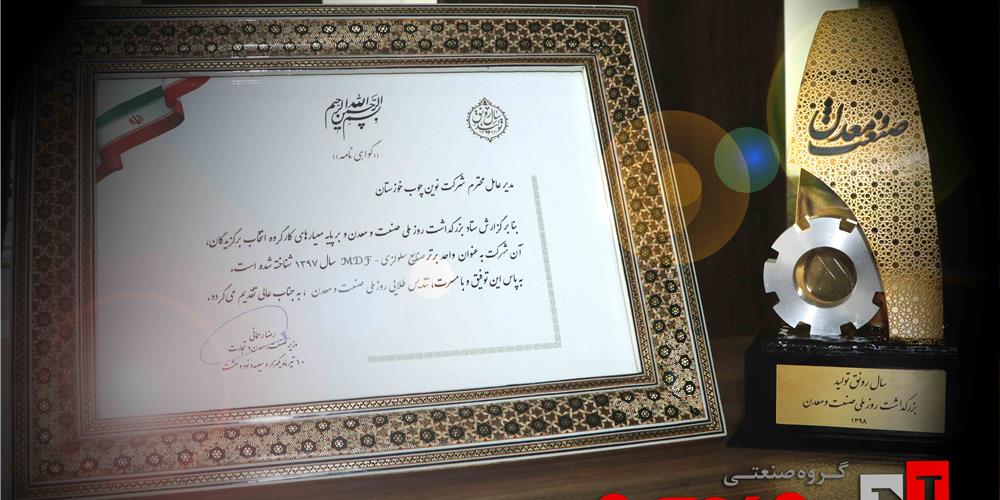 بسم الله الرحمن الرحیم
((گواهی نامه))
مدیر عامل محترم شرکت نوین چوب خوزستان
بنا بر گزارش ستاد بزرگداشت روز ملی صنعت و معدن و بر پایه معیارهای کارگروه انتخاب برگزیدگان،
آن شرکت به عنوان واحد برتر صنایع سلولزی - MDF سال ۱۳۹۷ شناخته شده است.
به پاس این توفیق و با مسرت، تندیس طلایی روز ملی صنعت و معدن ، به جناب عالی تقدیم می گردد.
رضا رحمانی
وزیر صنعت، معدن و تجارت
۱۰ تیر ماه یکهزار و سیصد و نود و هشت
صنعت و معدن
سال رونق تولید
بزرگداشت روز ملی صنعت و معدن
۱۳۹۸
گروه صنعتی